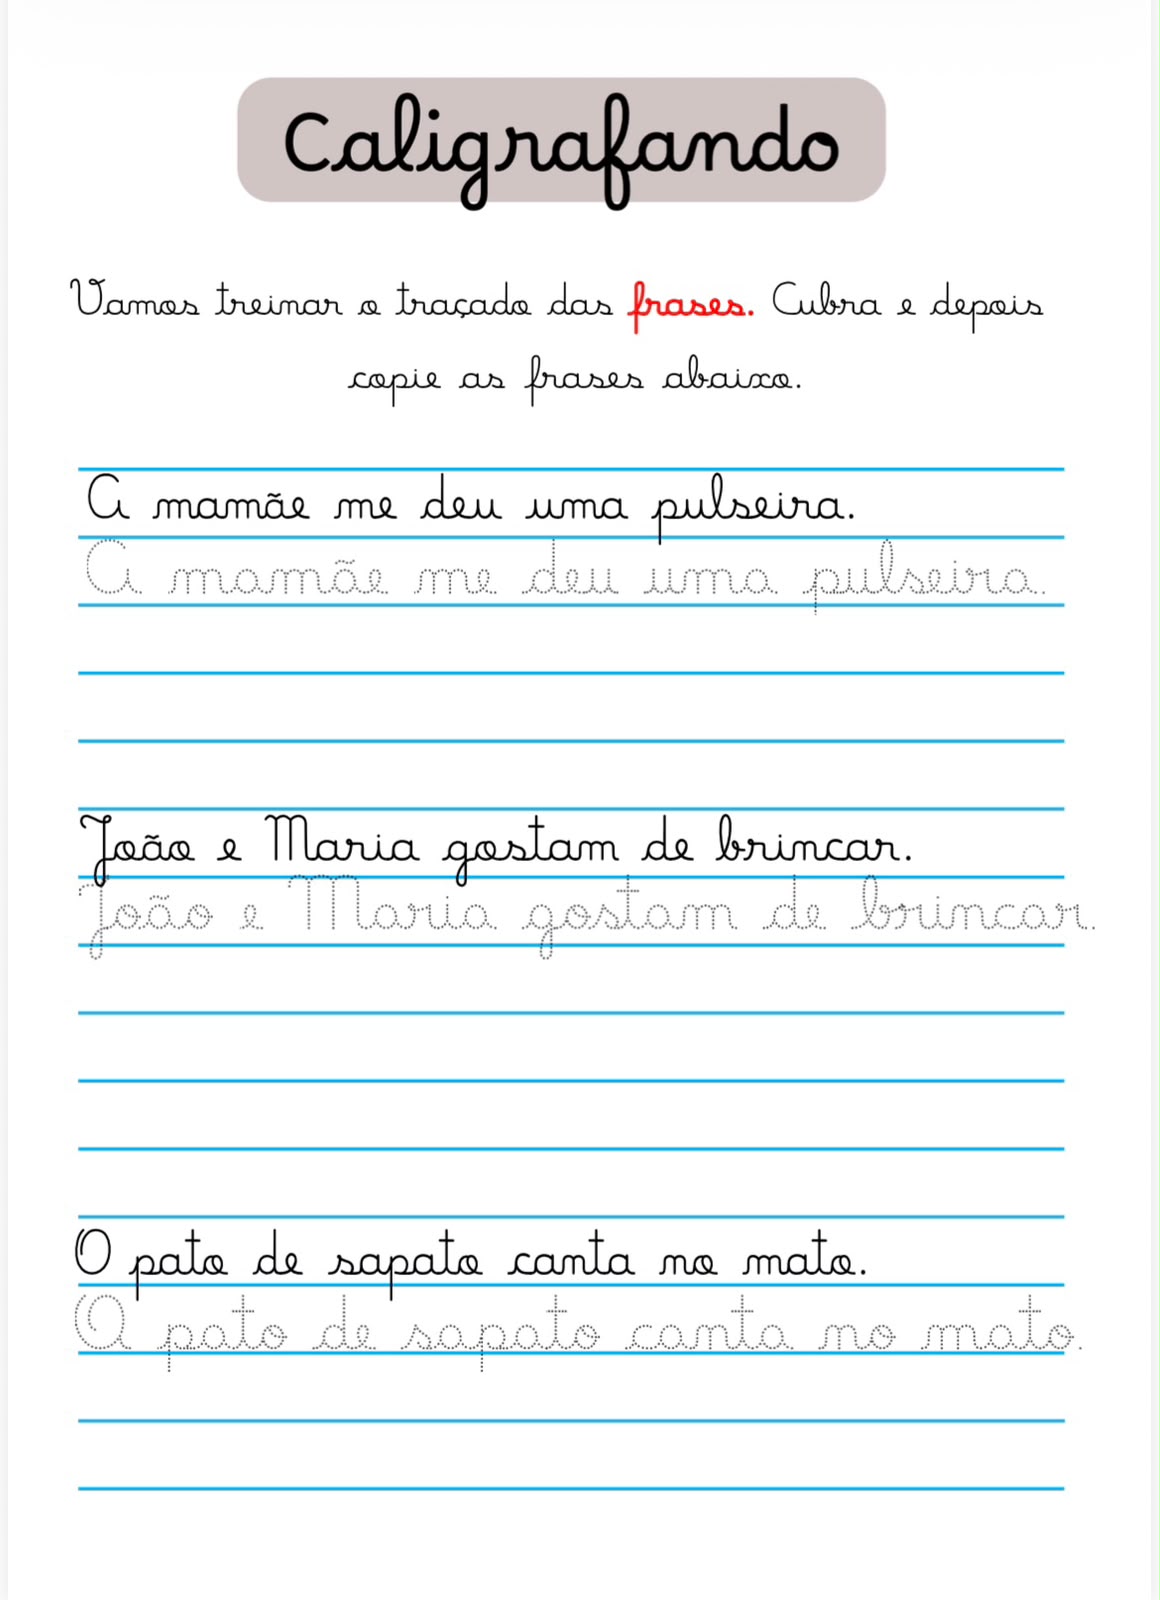 Caligrafando
Vamos treinar o traçado das frases. Cubra e depois
copie as frases abaixo.
A mamãe me deu uma pulseira.
A mamãe me deu uma pulseira.
João e Maria gostam de brincar.
João e Maria gostam de brincar.
O pato de sapato canta no mato.
O pato de sapato canta no mato.